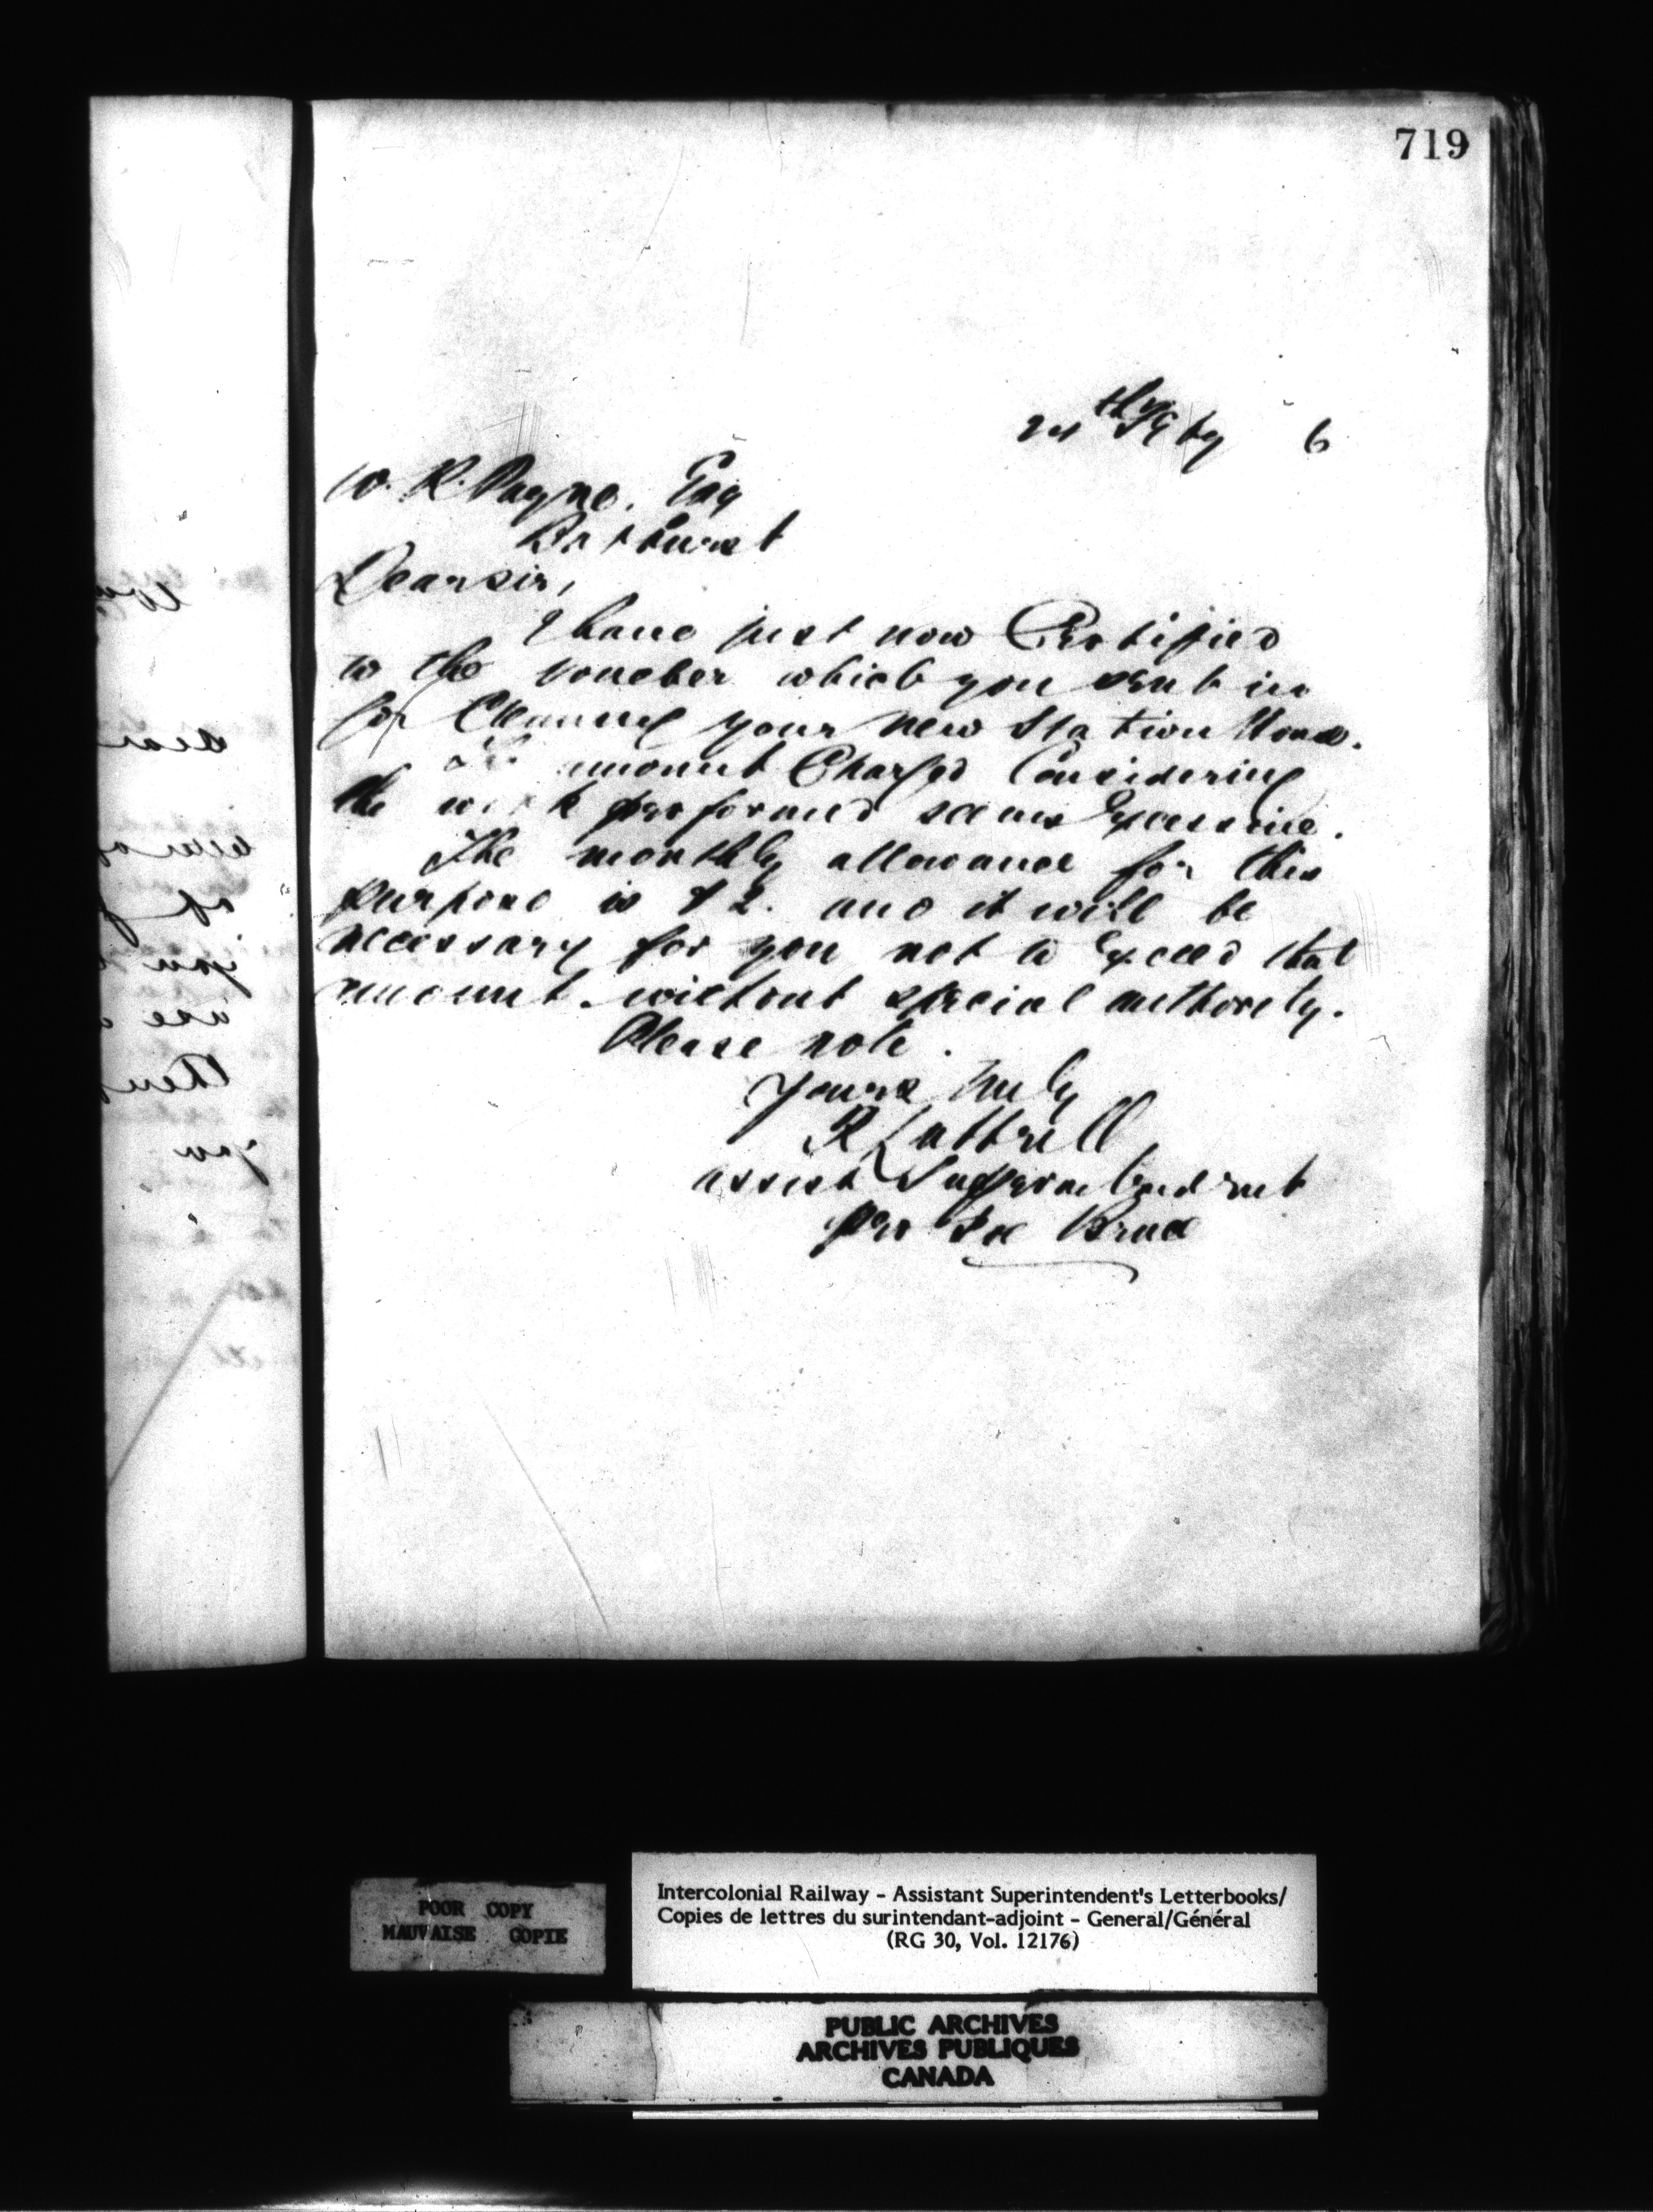 719
24th 6
W. R. Payne. Esq
Bathurst
Dear sir,
I have just now Certified
to the voucher which you sent in
for Cleaning your new Station House.
The amount Charged Considering
the work performed seems Excessive.
The monthly allowance for this
purpose is $2. and it will be
necessary for you not to Exceed that
amount without special authority.
Please note.
Yours truly
R Luttrell
assist Superintendent
per
POOR COPY
MAUVAISE COPIE
Intercolonial Railway - Assistant Superintendent's Letterbooks/
Copies de lettres du surintendant-adjoint - General/Général
(RG 30, Vol. 12176)
PUBLIC ARCHIVES
ARCHIVES PUBLIQUES
CANADA